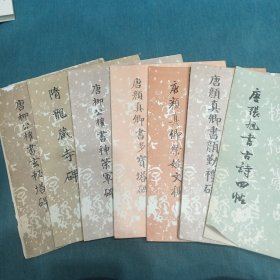 唐柳公權書玄秘塔碑
隋龍藏寺碑
唐柳公權書神策軍碑
唐顏真卿書多寶塔碑
唐顏真卿祭姪文稿
唐顏真卿書顏勤禮碑
唐張旭書古詩四帖